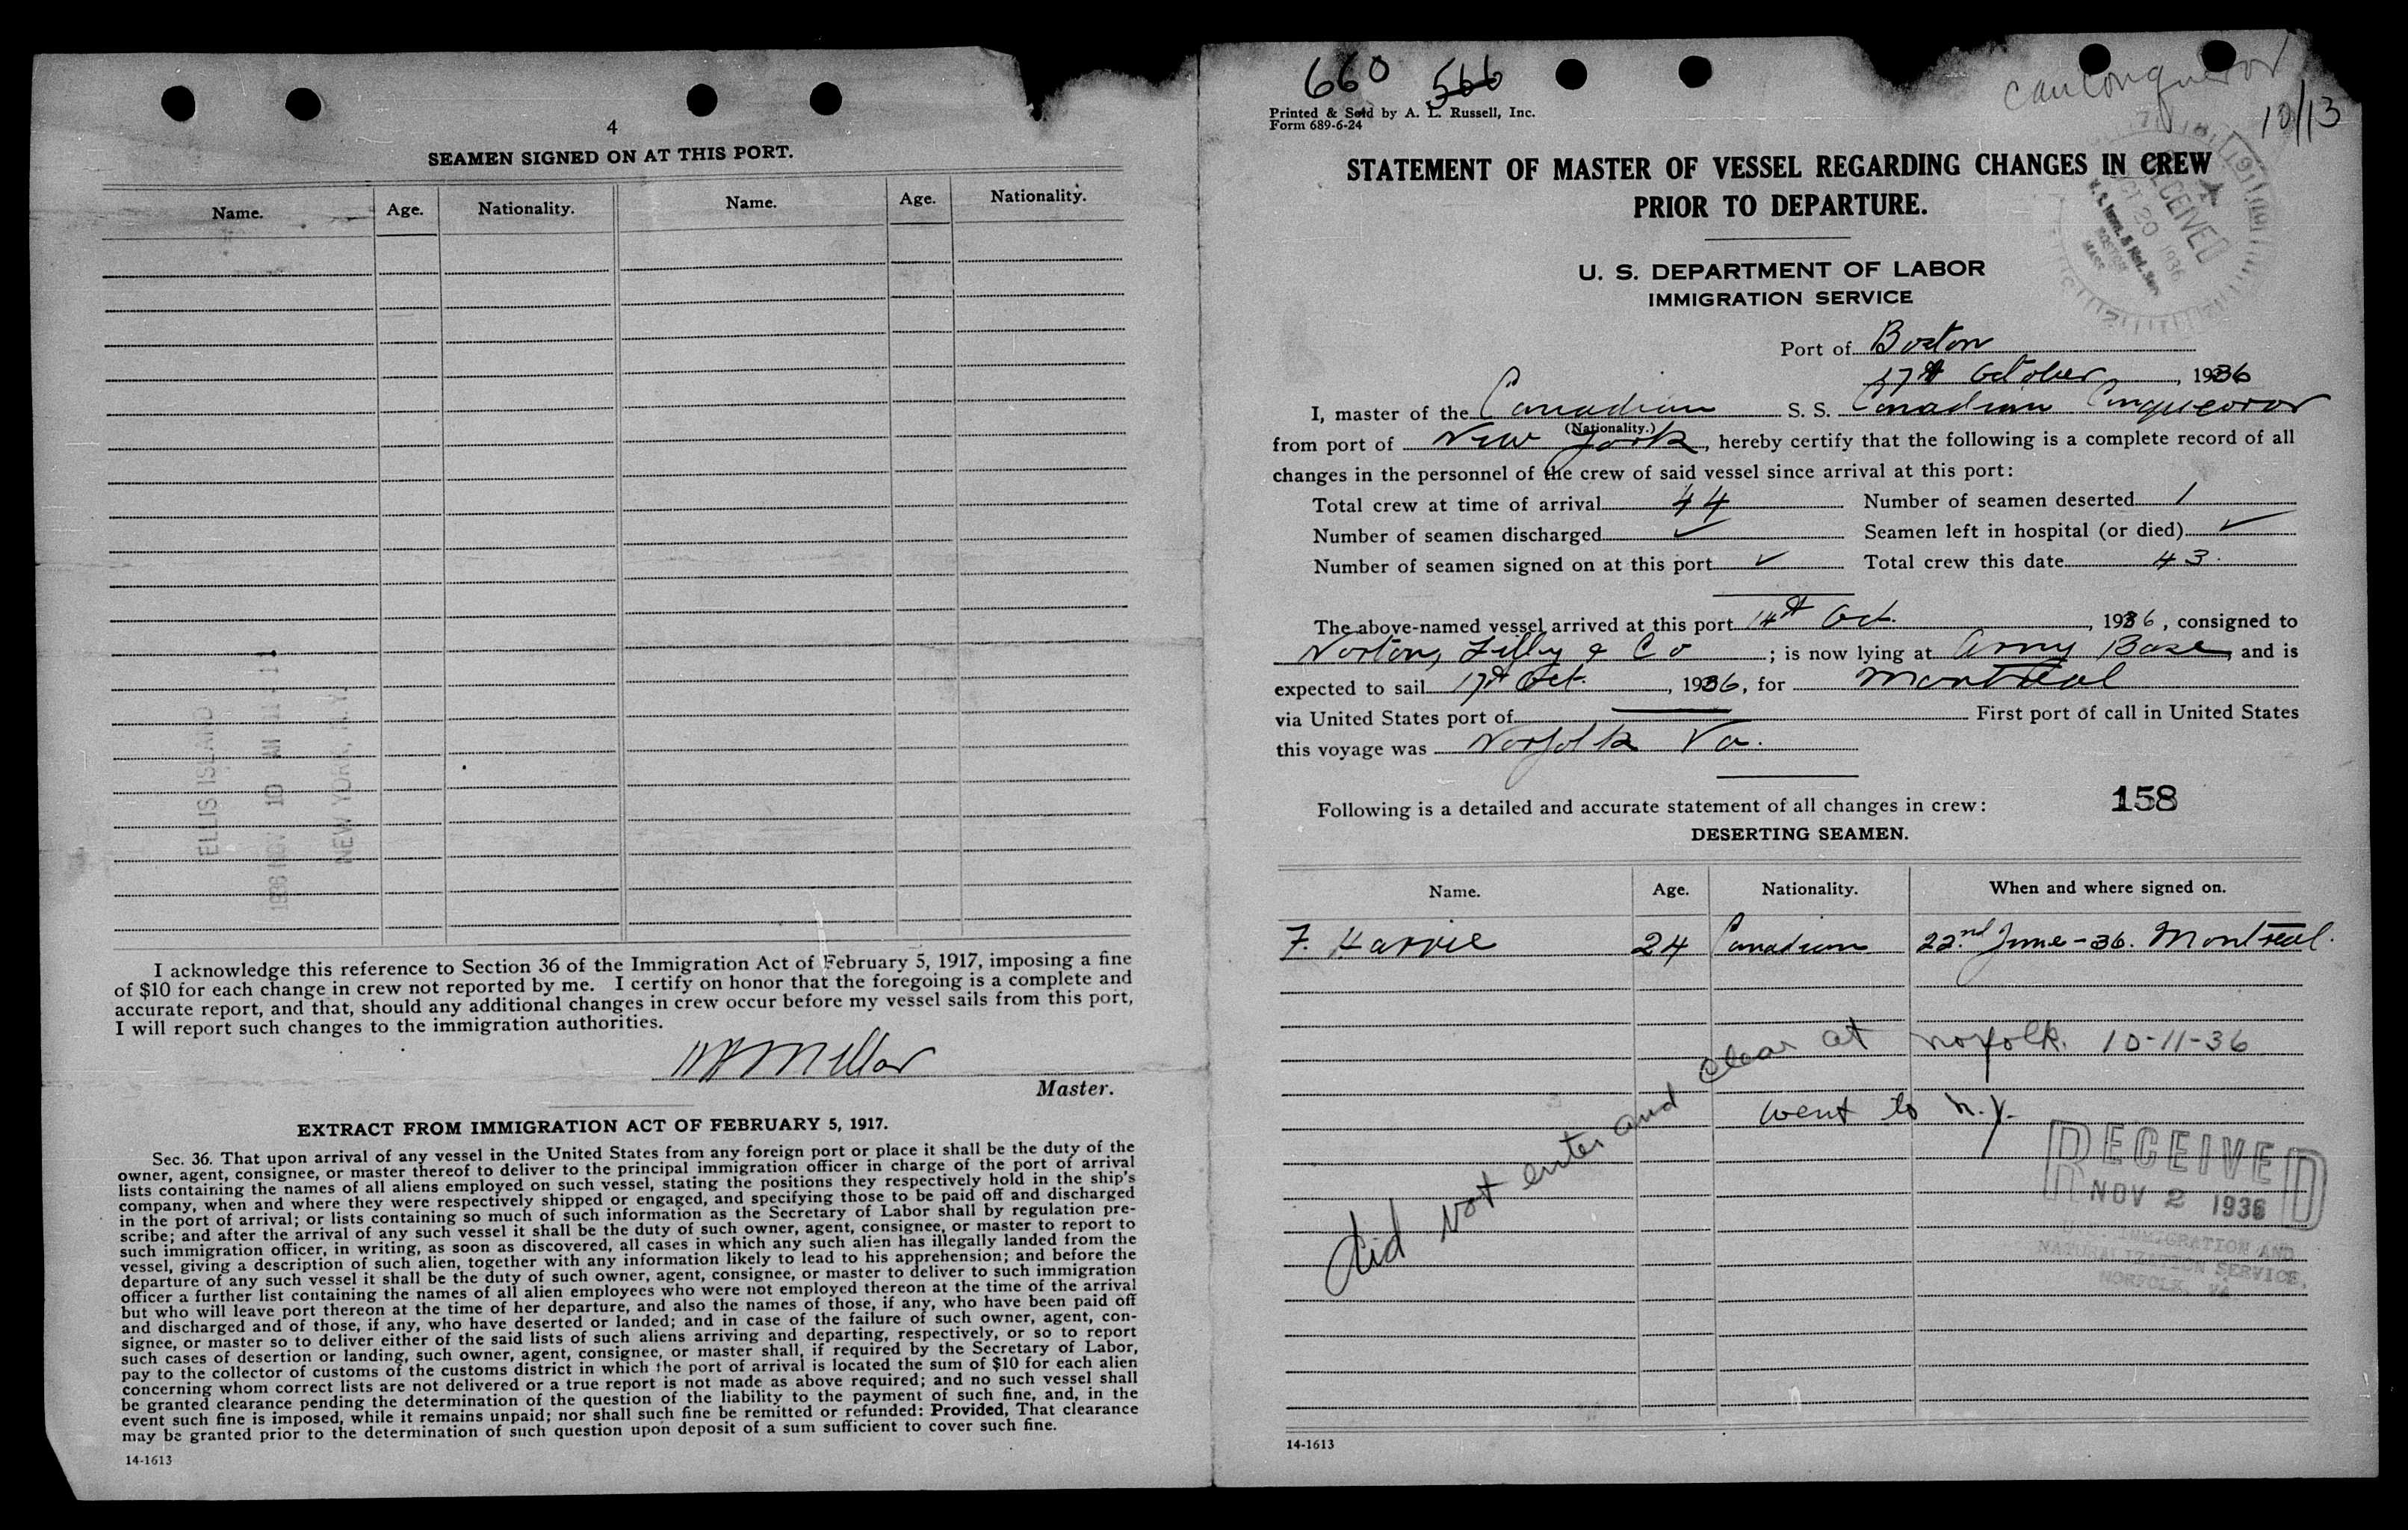 4
SEAMEN SIGNED ON AT THIS PORT.
Name. Age. Nationality. Name. Age. Nationality.
ELLIS ISLAND
1936 NOV 10 AM 11
NEW YORK, N.Y.
I acknowledge this reference to Section 36 of the Immigration Act of February 5, 1917, imposing a fine
of $10 for each change in crew not reported by me. I certify on honor that the foregoing is a complete and
accurate report, and that, should any additional changes in crew occur before my vessel sails from this port,
I will report such changes to the immigration authorities.
Millar
Master.
EXTRACT FROM IMMIGRATION ACT OF FEBRUARY 5, 1917.
Sec. 36. That upon arrival of any vessel in the United States from any foreign port or place it shall be the duty of the
owner, agent, consignee, or master thereof to deliver to the principal immigration officer in charge of the port of arrival
lists containing the names of all aliens employed on such vessel, stating the positions they respectively hold in the ship's
company, when and where they were respectively shipped or engaged, and specifying those to be paid off and discharged
in the port of arrival; or lists containing so much of such information as the Secretary of Labor shall by regulation pre-
scribe; and after the arrival of any such vessel it shall be the duty of such owner, agent, consignee, or master to report to
such immigration officer, in writing, as soon as discovered, all cases in which any such alien has illegally landed from the
vessel, giving a description of such alien, together with any information likely to lead to his apprehension; and before the
departure of any such vessel it shall be the duty of such owner, agent, consignee, or master to deliver to such immigration
officer a further list containing the names of all alien employees who were not employed thereon at the time of the arrival
but who will leave port thereon at the time of her departure, and also the names of those, if any, who have been paid off
and discharged and of those, if any, who have deserted or landed; and in case of the failure of such owner, agent, con-
signee, or master so to deliver either of the said lists of such aliens arriving and departing, respectively, or so to report
such cases of desertion or landing, such owner, agent, consignee, or master shall, if required by the Secretary of Labor,
pay to the collector of customs of the customs district in which the port of arrival is located the sum of $10 for each alien
concerning whom correct lists are not delivered or a true report is not made as above required; and no such vessel shall
be granted clearance pending the determination of the question of the liability to the payment of such fine, and, in the
event such fine is imposed, while it remains unpaid; nor shall such fine be remitted or refunded: Provided, That clearance
may be granted prior to the determination of such question upon deposit of a sum sufficient to cover such fine.
14-1613
660 566
Can Conqueror
10/13
Printed & Sold by A. L. Russell, Inc.
Form 689-6-24
STATEMENT OF MASTER OF VESSEL REGARDING CHANGES IN CREW
PRIOR TO DEPARTURE.
RECEIVED
OCT 20 1936
U.S. Immi. & Nat. Serv.
BOSTON
MASS
U. S. DEPARTMENT OF LABOR
IMMIGRATION SERVICE
Port of Boston
17th October, 1936
I, master of the Canadian S. S. Canadian Conqueror
(Nationality.)
from port of New York, hereby certify that the following is a complete record of all
changes in the personnel of the crew of said vessel since arrival at this port:
Total crew at time of arrival 44 Number of seamen deserted 1
Number of seamen discharged ✓ Seamen left in hospital (or died) ✓
Number of seamen signed on at this port ✓ Total crew this date 43.
The above-named vessel arrived at this port 14th Oct. , 1936, consigned to
Norton, Lilly & Co ; is now lying at Army Base, and is
expected to sail 17th Oct. , 1936, for Montreal
via United States port of First port of call in United States
this voyage was Norfolk Va.
Following is a detailed and accurate statement of all changes in crew: 158
DESERTING SEAMEN.
Name. Age. Nationality. When and where signed on.
F. Harvie 24 Canadian 22nd June-36. Montreal.
Did not enter and clear at Norfolk. 10-11-36
went to N.Y.
RECEIVED
NOV 2 1936
U.S. IMMIGRATION AND
NATURALIZATION SERVICE,
NORFOLK, VA
14-1613